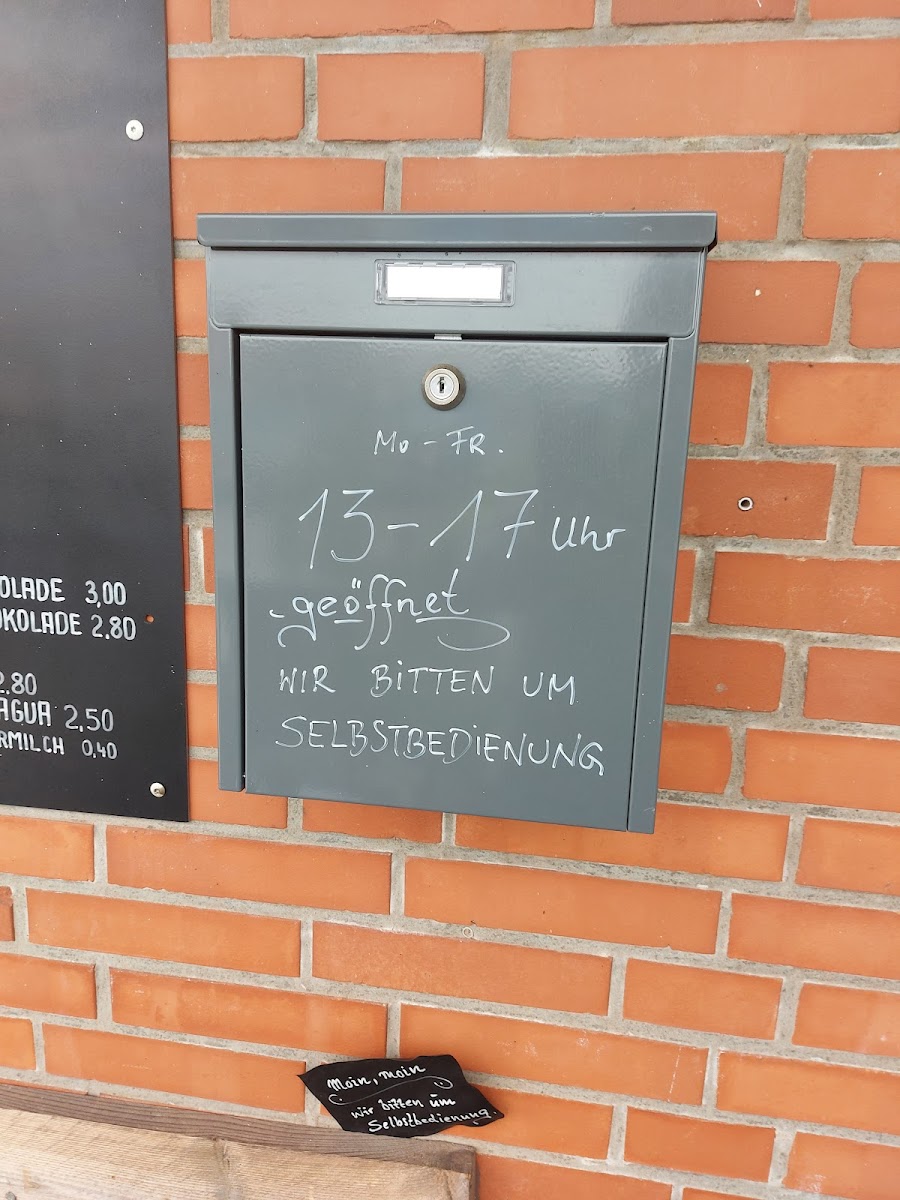 OLADE 3,00
OKOLADE 2,80
2.80
AGUA 2,50
RMILCH 0,40
Mo - FR.
13-17 Uhr
geöffnet
WIR BITTEN UM
SELBSTBEDIENUNG
Moin, moin
wir bitten um
Selbstbedienung.